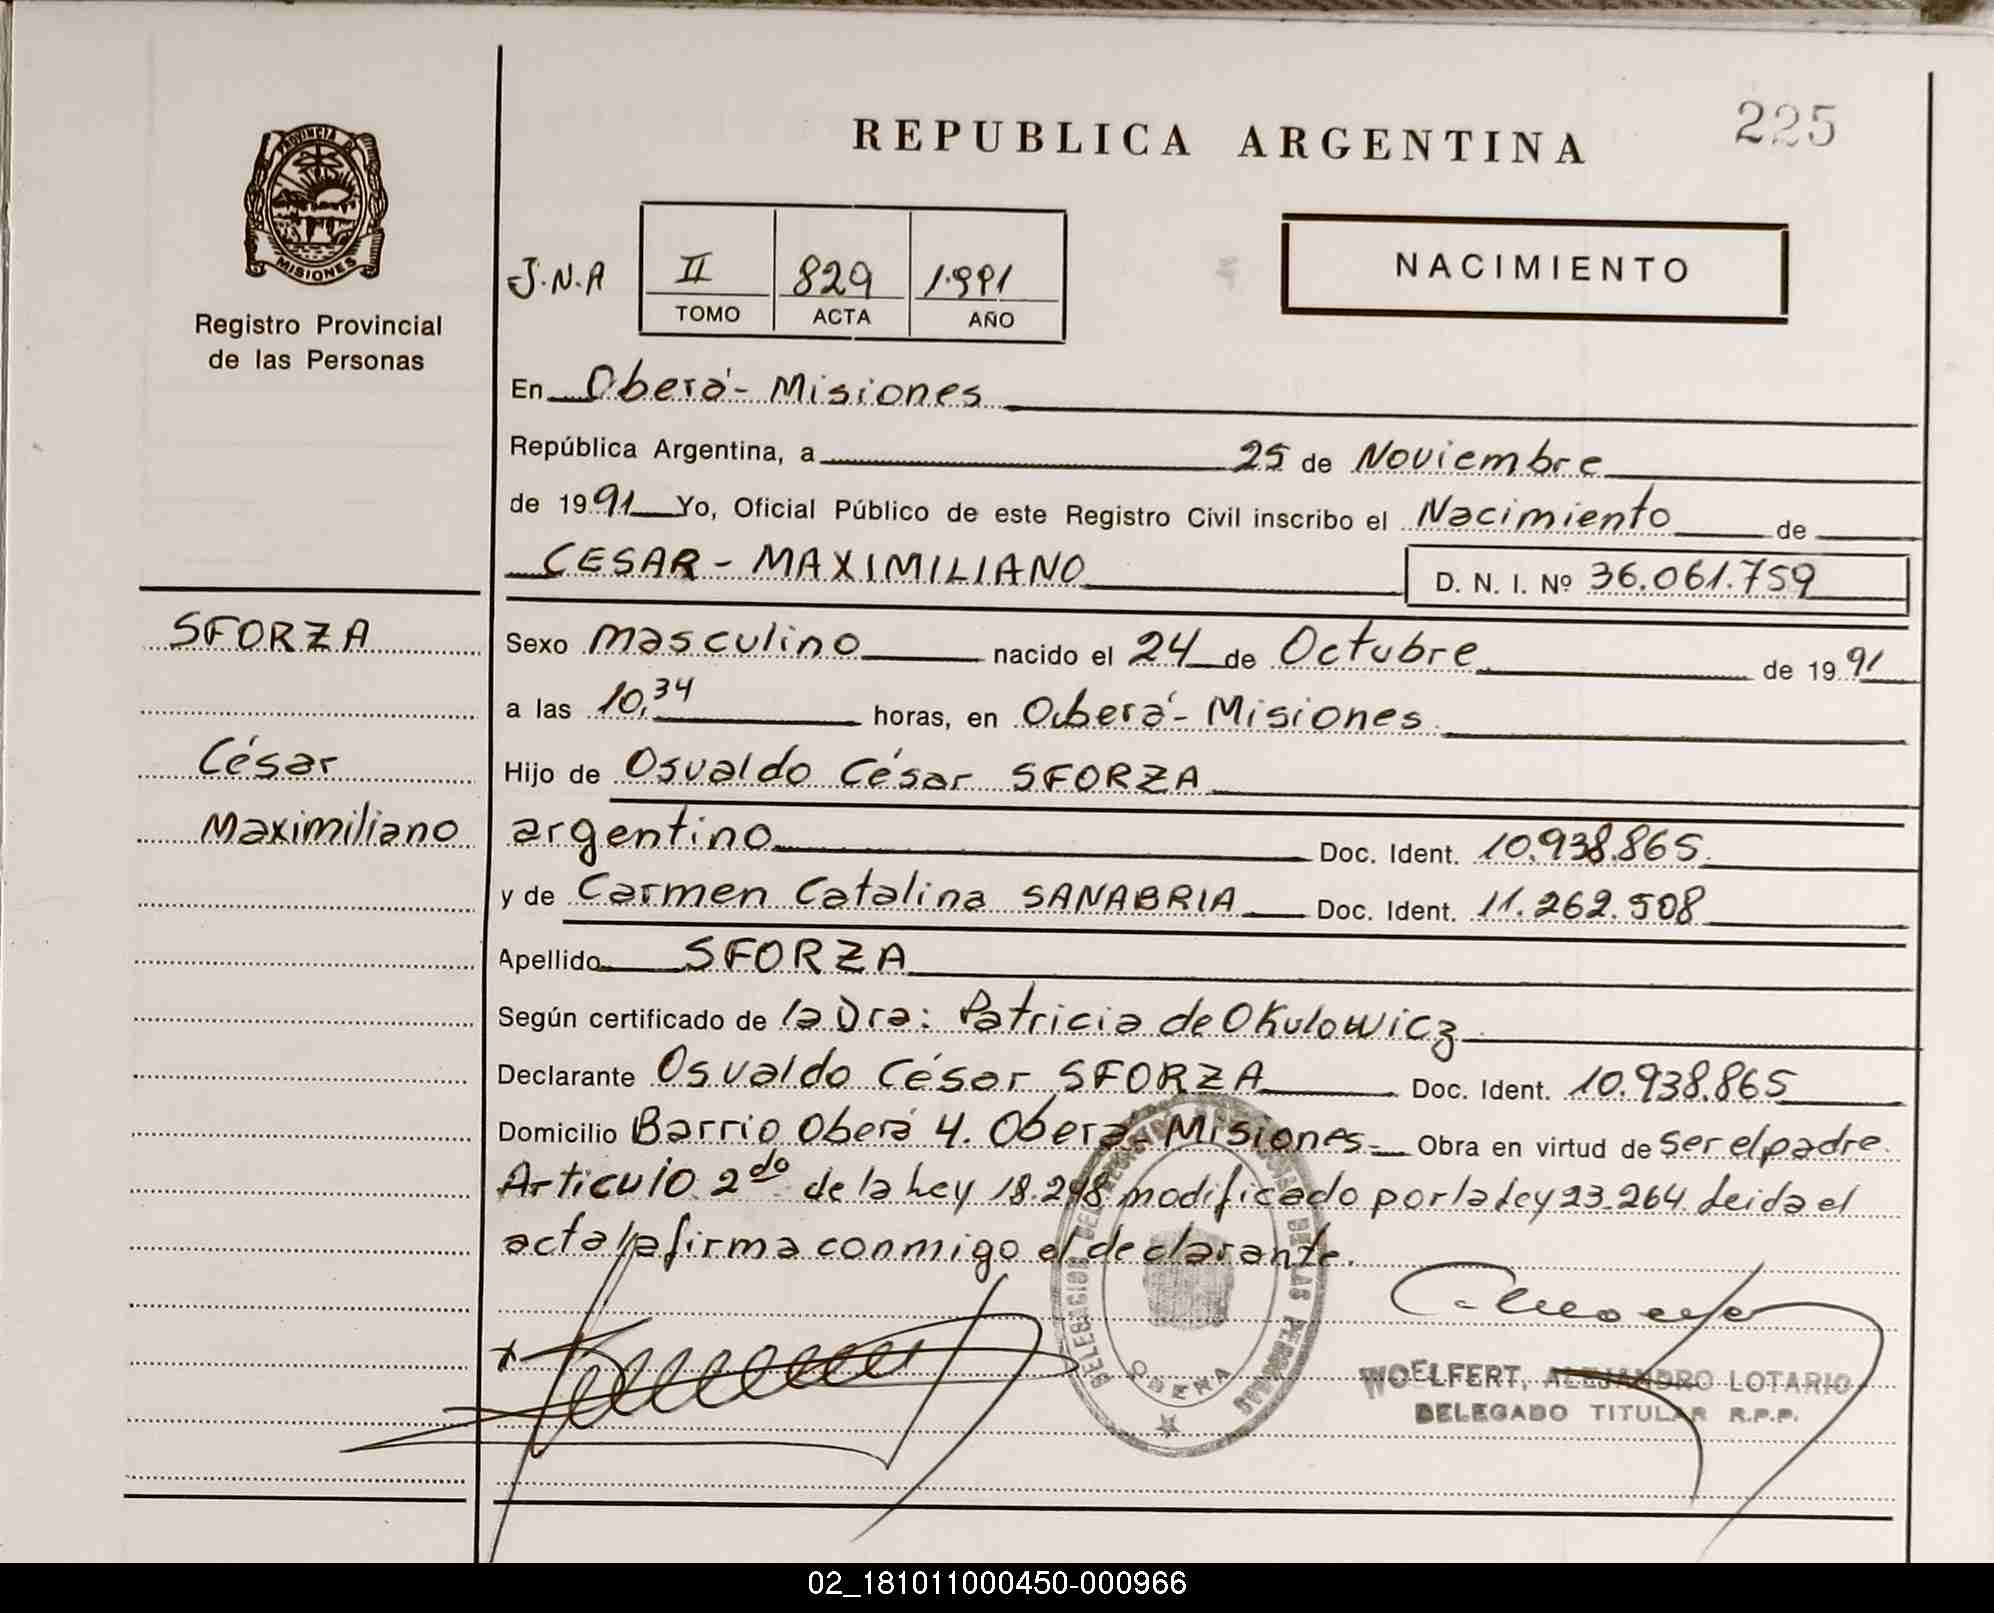 REPUBLICA ARGENTINA
225
PROVINCIA D
MISIONES
Registro Provincial
de las Personas
J.N.A
II
829
1.991
TOMO
ACTA
AÑO
NACIMIENTO
En Oberá - Misiones
República Argentina, a 25 de Noviembre
de 1991 Yo, Oficial Público de este Registro Civil inscribo el Nacimiento de
CESAR - MAXIMILIANO
D. N. I. Nº 36.061.759
SFORZA
César
Maximiliano
Sexo masculino nacido el 24 de Octubre de 1991
a las 10,34 horas, en Oberá - Misiones
Hijo de Osvaldo César SFORZA
argentino Doc. Ident. 10.938.865.
y de Carmen Catalina SANABRIA Doc. Ident. 11.262.508
Apellido SFORZA
Según certificado de la Dra: Patricia de Okulowicz
Declarante Osvaldo César SFORZA Doc. Ident. 10.938.865
Domicilio Barrio Oberá 4. Oberá - Misiones Obra en virtud de ser el padre.
Articulo 2do de la Ley 18.248 modificado por la Ley 23.264. Leida el
acta la firma conmigo el declarante.
DELEGACION DEL REGISTRO DE LAS PERSONAS
OBERA
WOELFERT, ALEJANDRO LOTARIO
DELEGADO TITULAR R.P.P.
02_181011000450-000966